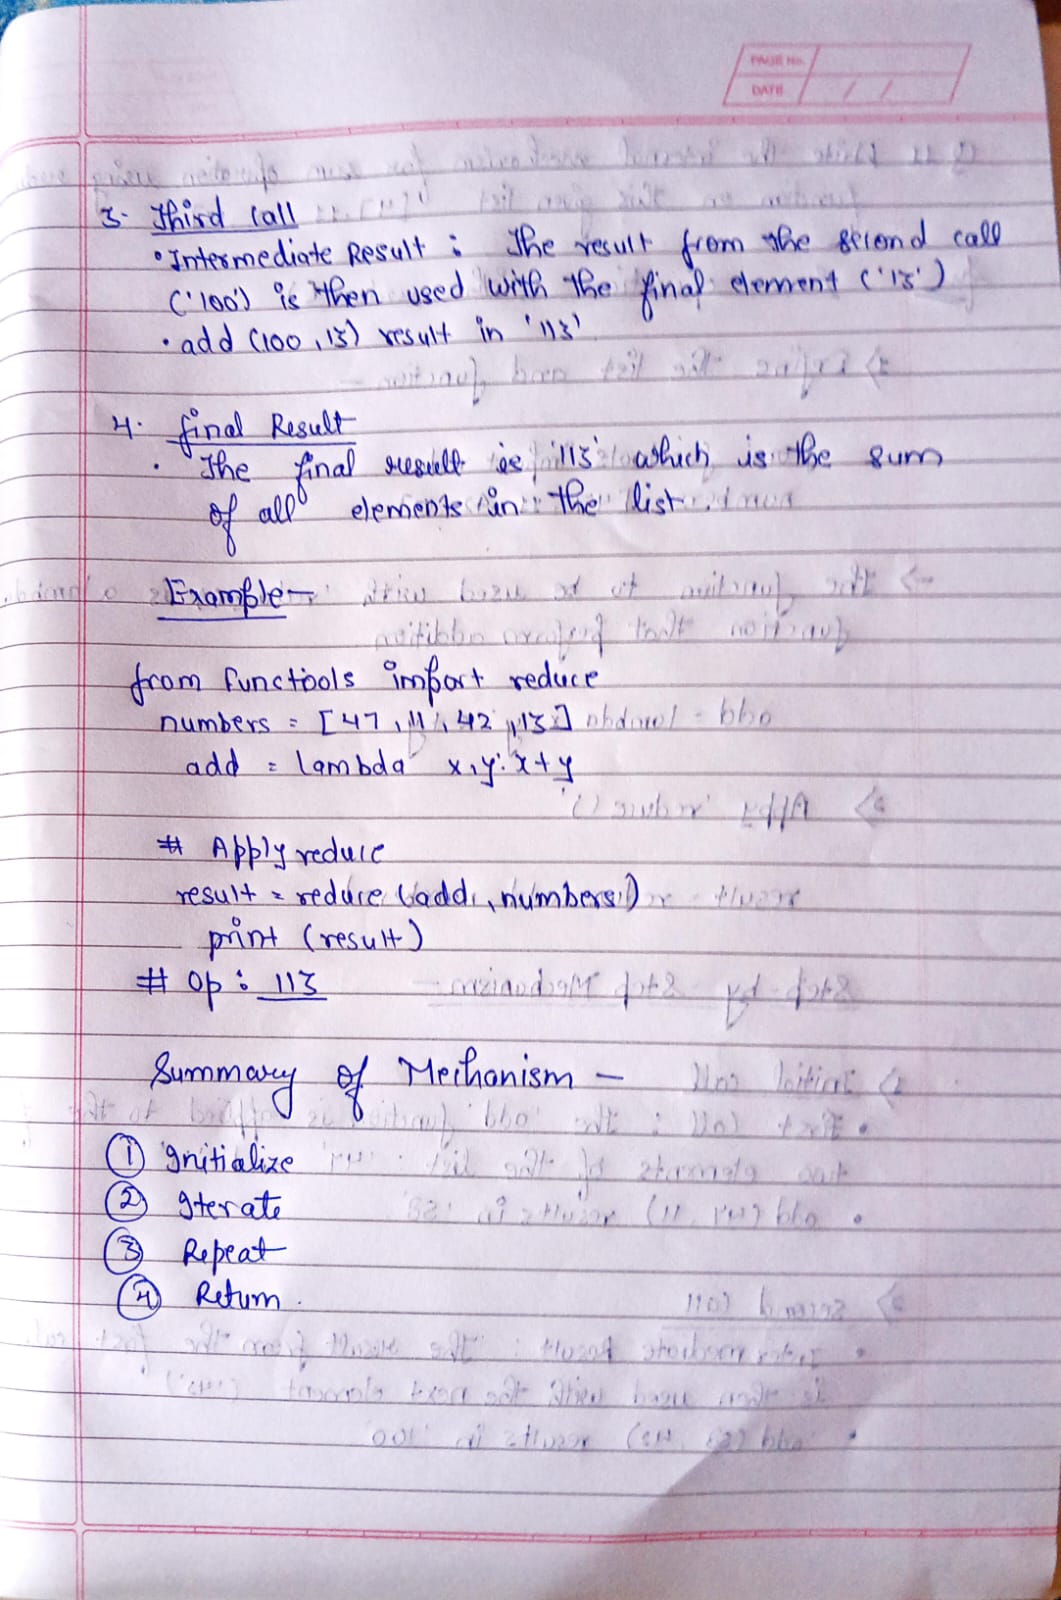 PAGE No.
DATE / /
3. Third Call
• Intermediate Result : The result from the second call
('100') is then used with the final element ('13')
• add (100, 13) result in '113'
4. final Result
• The final result is '113' which is the sum
of all elements in the list.
Example -
from functools import reduce
numbers = [47, 11, 42, 13]
add = lambda x,y: x+y
# Apply reduce
result = reduce (add, numbers)
print (result)
# Op : 113
Summary of Mechanism -
① Initialize
② Iterate
③ Repeat
④ Return.